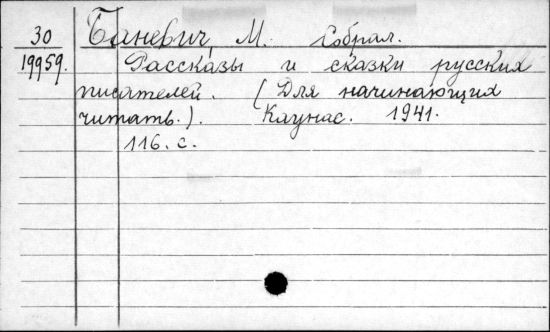 30 Баневич М. Собрал.
19959. Рассказы и сказки русских
писателей. (Для начинающих
читать.). Каунас. 1941.
116. с.